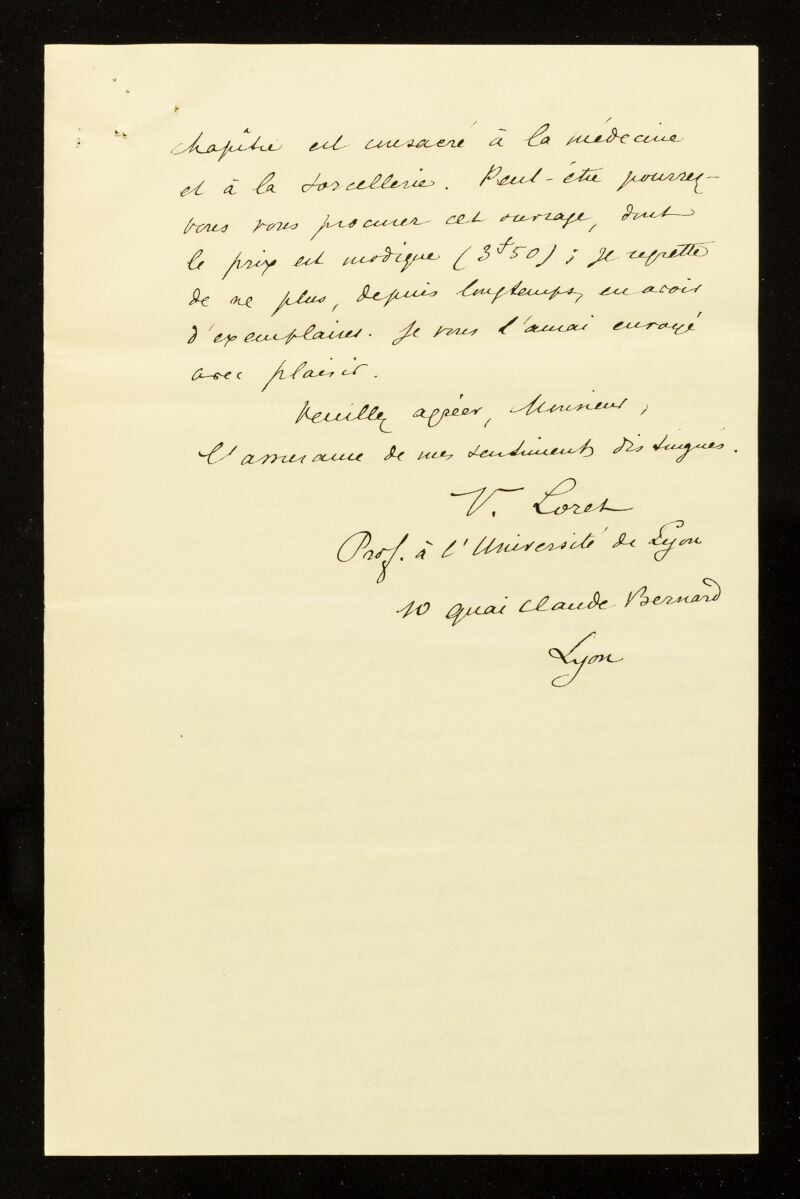 chapitre est consacré à la médecine
et à la sorcellerie. Peut-être pourrez-
vous vous procurer cet ouvrage, dont
le prix est modique (3f50) ; je regrette
de ne plus, depuis longtemps, en avoir
d'exemplaires. Je vous l'aurai envoyé
avec plaisir.
Veuillez agréer, Monsieur,
l'assurance de mes sentiments distingués.
V. Loret
Prof. à l'Université de Lyon
10 quai Claude Bernard
Lyon